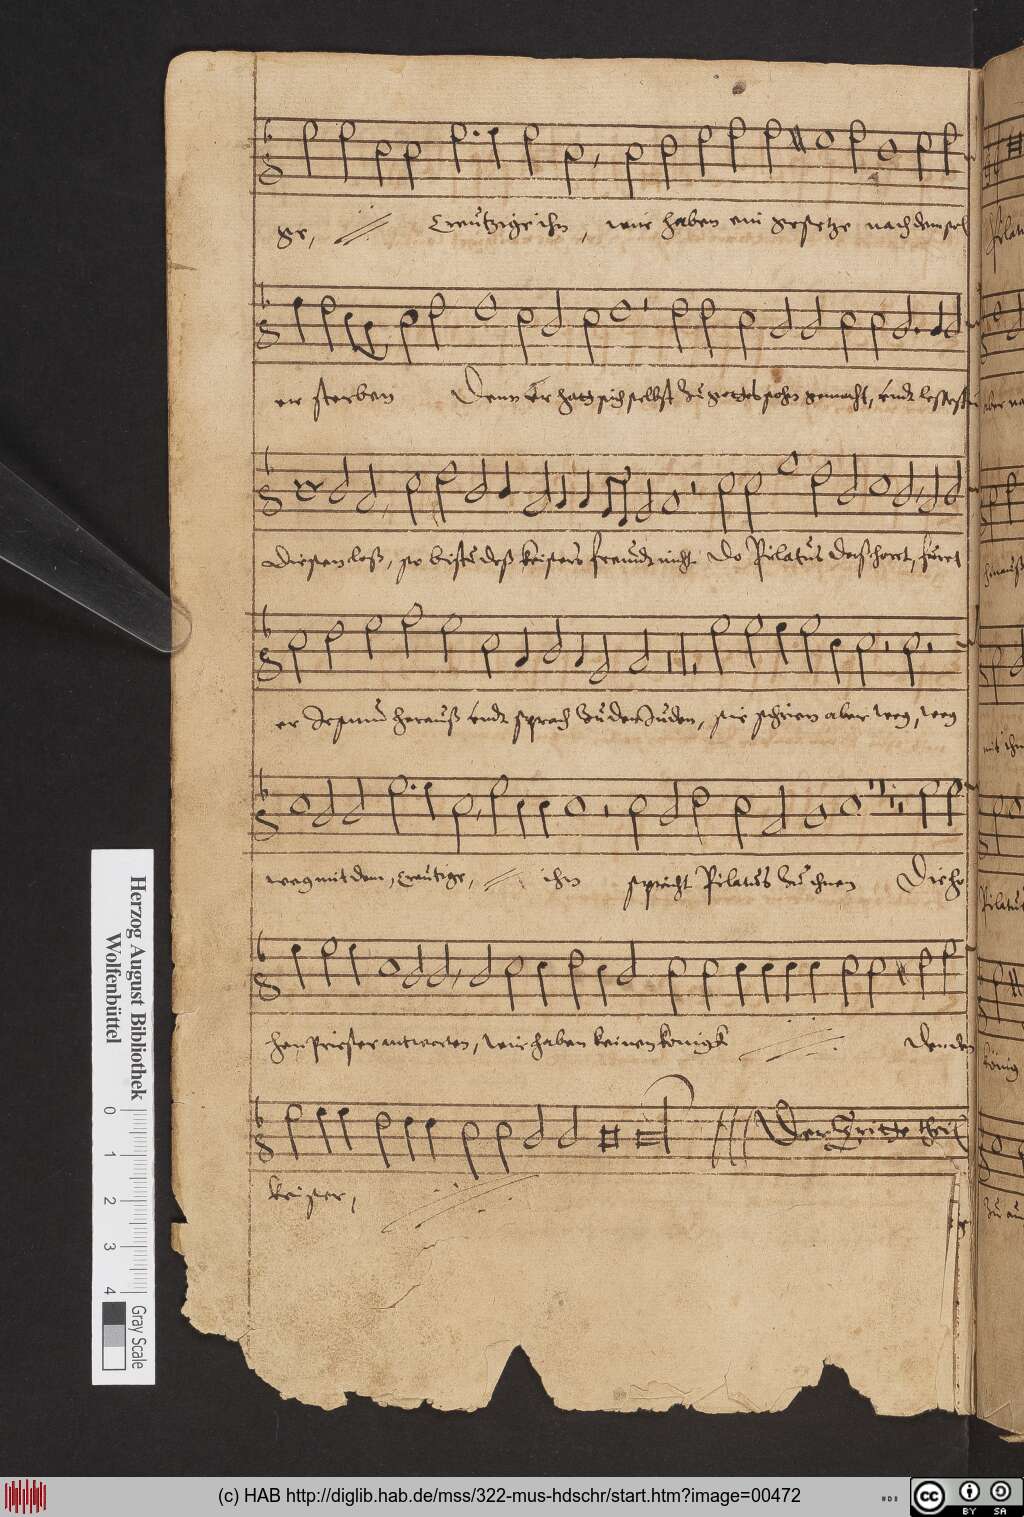 ge, Creützige ihn, wir haben ein gesetze nach dem sol
er sterben Denn Er hatt sich selbst zu gottes sohn gemacht, undt lessestu
Diesen loß, so bistu deß keisers freundt nicht Do Pilatus daß horet, füret
er Jesum herauß undt sprach zu den Juden, sie schrien aber weg, weg
weg mit dem, creutige, ihn spricht Pilatus zu ihnen Die ho
hen Priester antworten, wir haben keinen konigk Den den
keiser,
Der Dritte theil
Herzog August Bibliothek
Wolfenbüttel
0 1 2 3 4
Gray Scale
(c) HAB http://diglib.hab.de/mss/322-mus-hdschr/start.htm?image=00472
cc BY SA